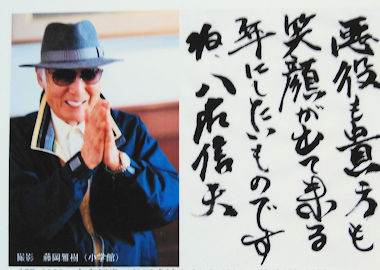 悪役も貴方も
笑顔が出て来る
年にしたいものです
ね、八名信夫
撮影　藤岡雅樹（小学館）